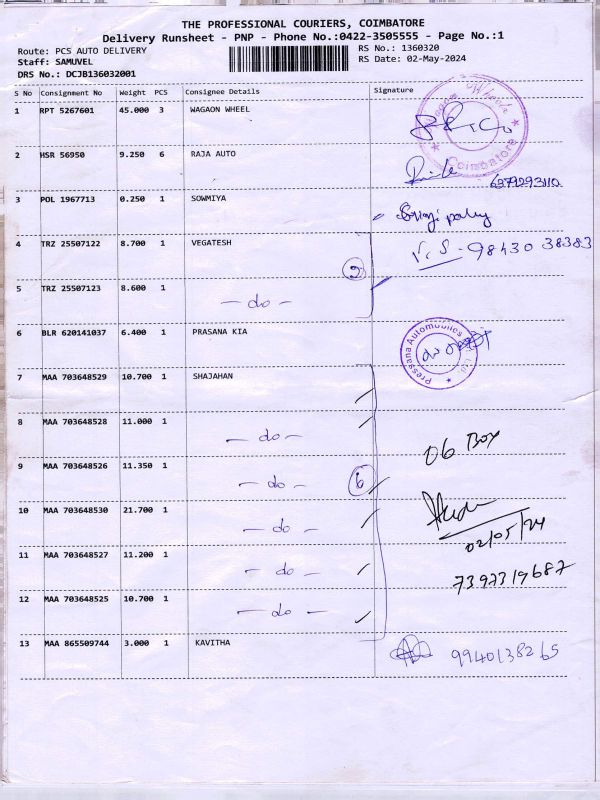 THE PROFESSIONAL COURIERS, COIMBATORE
Delivery Runsheet - PNP - Phone No.:0422-3505555 - Page No.:1
Route: PCS AUTO DELIVERY RS No.: 1360320
Staff: SAMUVEL RS Date: 02-May-2024
DRS No.: DCJB136032001
S No Consignment No Weight PCS Consignee Details Signature
1 RPT 5267601 45.000 3 WAGAON WHEEL
Wheels
Coimbatore
2 HSR 56950 9.250 6 RAJA AUTO
6379293110
3 POL 1967713 0.250 1 SOWMIYA
4 TRZ 25507122 8.700 1 VEGATESH V.S - 98430 38383
2
5 TRZ 25507123 8.600 1 - do -
6 BLR 620141037 6.400 1 PRASANA KIA
Automobiles
7 MAA 703648529 10.700 1 SHAJAHAN
8 MAA 703648528 11.000 1 - do -
06 Box
9 MAA 703648526 11.350 1 - do - 6
10 MAA 703648530 21.700 1 - do -
02/05/24
11 MAA 703648527 11.200 1 - do -
7397319687
12 MAA 703648525 10.700 1 - do -
13 MAA 865509744 3.000 1 KAVITHA 9940138265